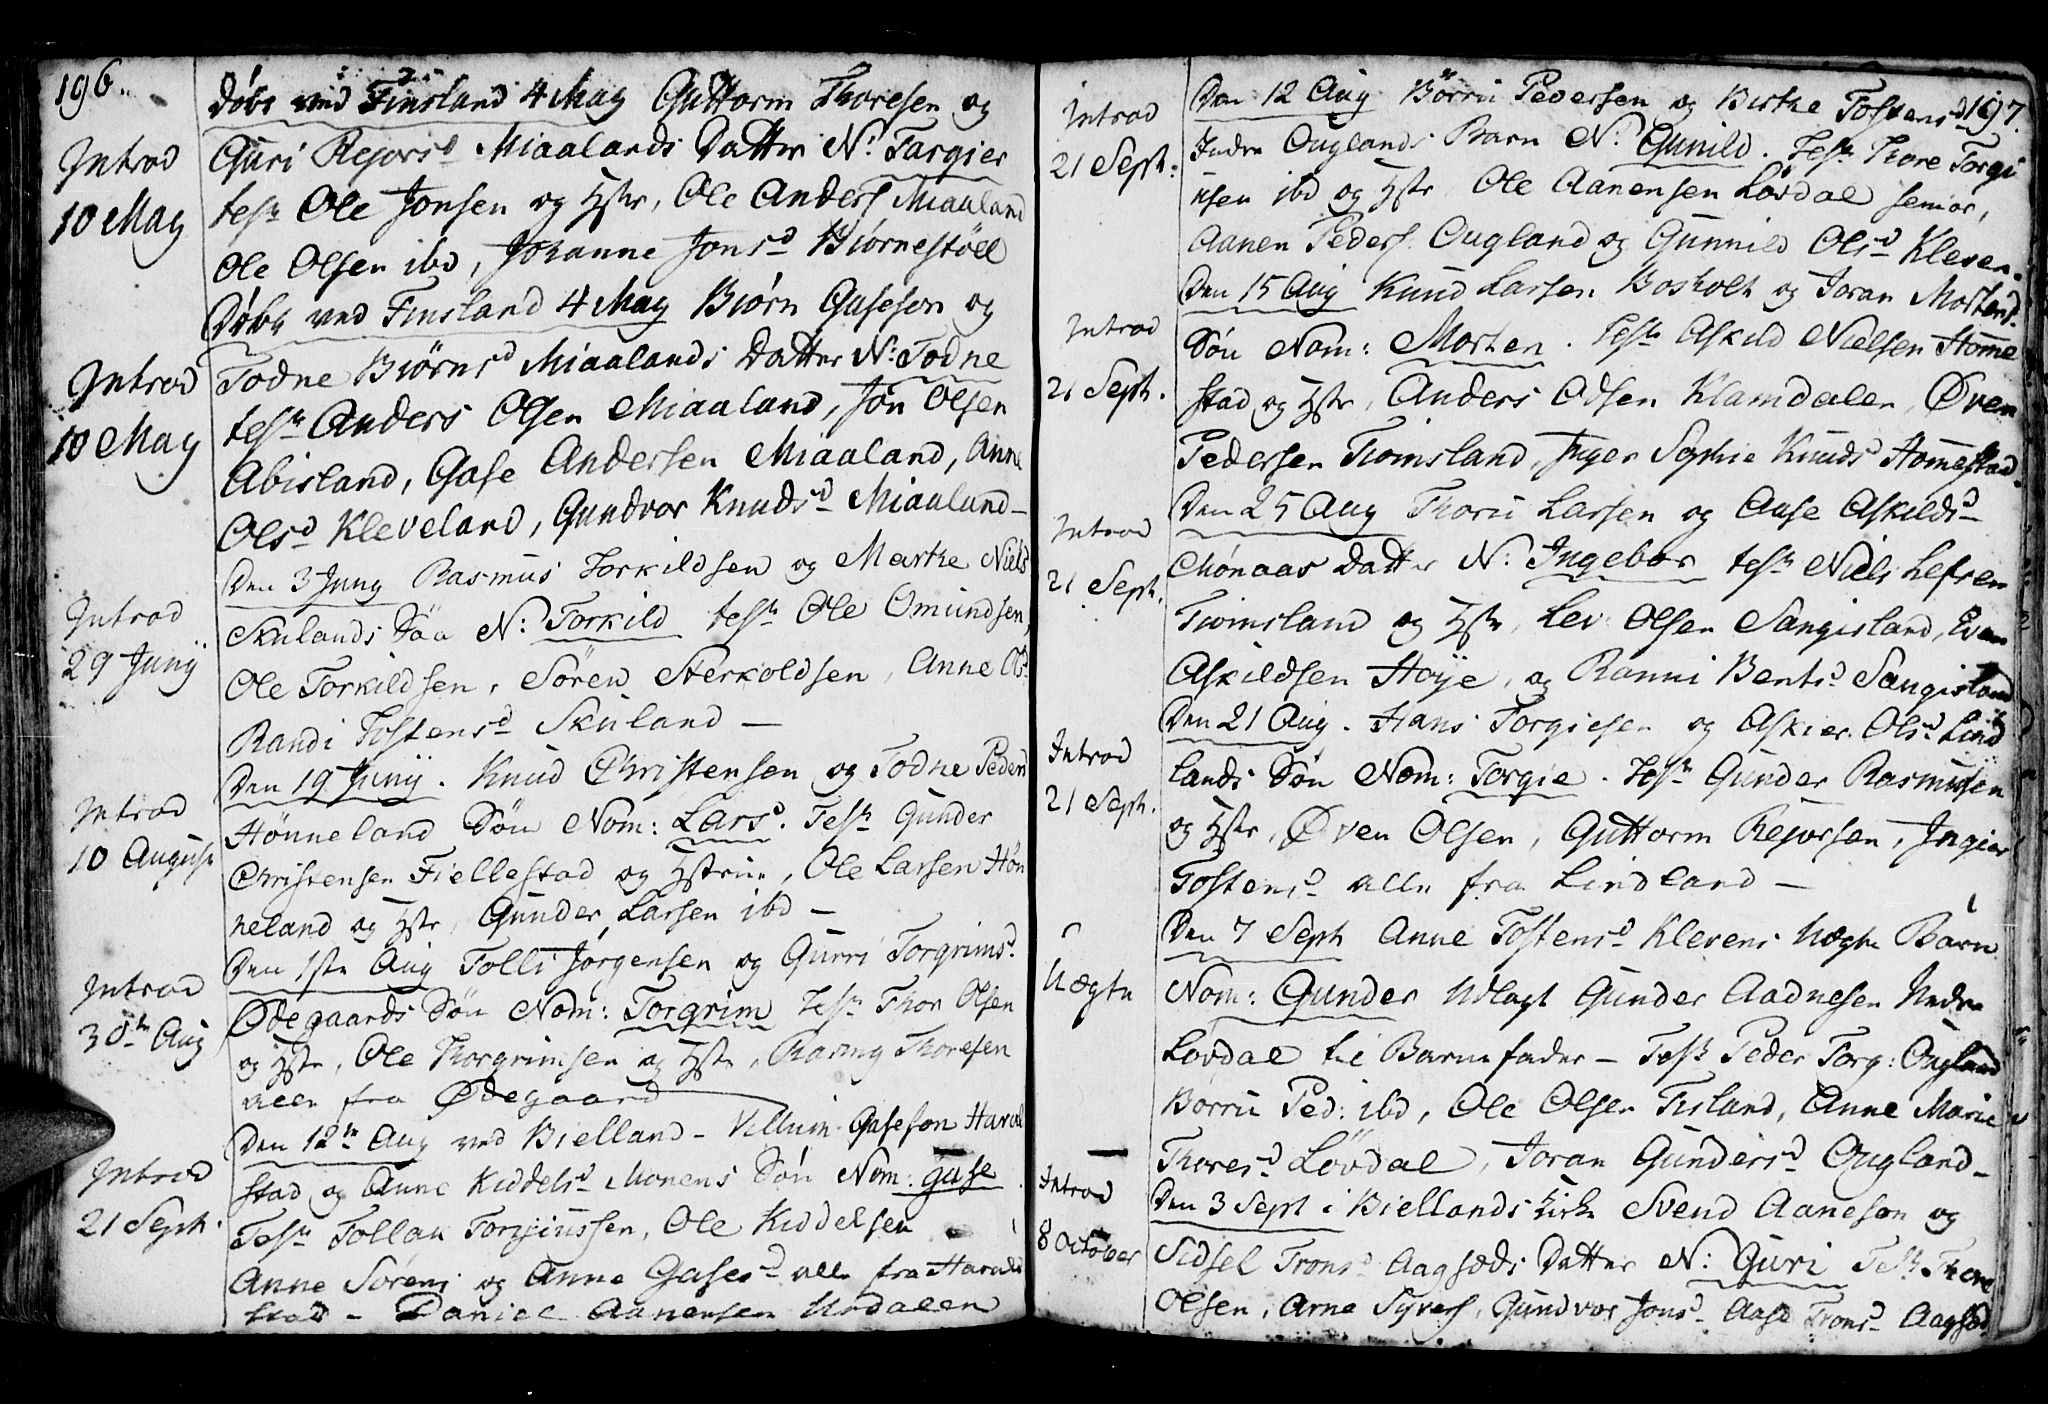 196.
Døbt ved Finsland 4 May Guttorm Thoresen og
Guri Rejorsd Miaalands Datter N: Targier
Introd
10 May
test: Ole Jonsen og Hstr, Ole Anders Miaaland
Ole Olsen ibd, Johanne Jonsd Biørnestöel
Døbt ved Finsland 4 May Biørn Gaseson og
Introd
10 May
Todne Biørnsd Miaalands Datter N: Todne
test: Anders Olsen Miaaland, Jon Olsen
Abisland, Gase Andersen Miaaland, Anne
Olsd Kleveland, Gundvor Knudsd Miaaland
Den 3 Juny Rasmus Torkildsen og Marthe Niels
Introd
29 Junij
Skulands Søn N: Torkild test: Ole Omundsen,
Ole Torkildsen, Sören Sterkoldsen, Anne Olsd
Randi Tostensd Skuland –
Den 19 Junij. Knud Christensen og Todne Peders
Introd
10 August
Hönneland Søn Nom: Lars. Test: Gunder
Christensen Fiellestad og Hstrue, Ole Larsen Hön
neland og Hstr, Gunder Larsen ibd –
Den 1ste Aug Tolli Jørgensen og Gurri Torgrimsd
Introd
30te Aug
Ødegaards Søn Nom: Torgrim Test: Thor Olsen
og Hstr, Ole Thorgrimsen og Hstr, Rasmy Thoresen
alle fra Ødegaard
Den 12te Aug ved Bielland – Villum Gaseson Haral
Introd
21 Sept.
stad og Anne Kiddelsd Monens Søn Nom: gase
Test: Tollau Torgiussen, Ole Kiddelsen
Anne Sørens og Anne Gasesd alle fra Harald
stad – Daniel Aanensen Urdalen
197.
Introd
21 Sept:
Den 12 Aug Börru Pedersen og Birthe Tostensd
Indre Ouglands Barn N: Gunild. Test: Thore Torgi
usen ibd og Hstr, Ole Aanensen Lövdal senior,
Aanen Peders. Ougland og Gunnild Olsd Kleven.
Den 15 Aug Knud Larsen Bosholt og Joran Mortensd
Introd
21 Sept.
Søn Nom: Morten. Test: Askild Nielsen Home
stad og Hstr, Anders Odsen Klamdalen, Øven
Pedersen Tvinsland, Inger Sophie Knuds Homestad.
Den 25 Aug Thoru Larsen og Aase Askildsd
Introd
21 Sept.
Mönaas Datter N: Ingebor test: Niels Lefsen
Tvinsland og Hstr, Lev Olsen Sangisland, Even
Askildsen Høye, og Ranni Bentsd Sangisland
Den 21 Aug. Hans Torgiesen og Askier Olsd Lind
Introd
21 Sept.
lands Søn Nom: Torgie. Test: Gunder Rasmusen
og Hstr, Øven Olsen, Guttorm Rejorsen, Ingier
Tostensd alle fra Lindland –
Den 7 Sept Anne Tostensd Klevens Uægte Barn
Uægte
Nom: Gunder Udlagt Gunder Aadnesen Nedre
Lövdal til Barnefader – Test: Peder Torg: Ougland
Börru Ped: ibd, Ole Olsen Fisland, Anne Marie
Thoresd Lövdal, Joran Gundersd Ougland –
Introd
8 October
Den 3 Sept i Biellands Kirke Svend Aaneson og
Sidsel Tronsd Aagsæds Datter N: Guri Test: Thore
Olsen, Arne Syvers, Gundvor Jonsd Aase Tronsd Aagsæd